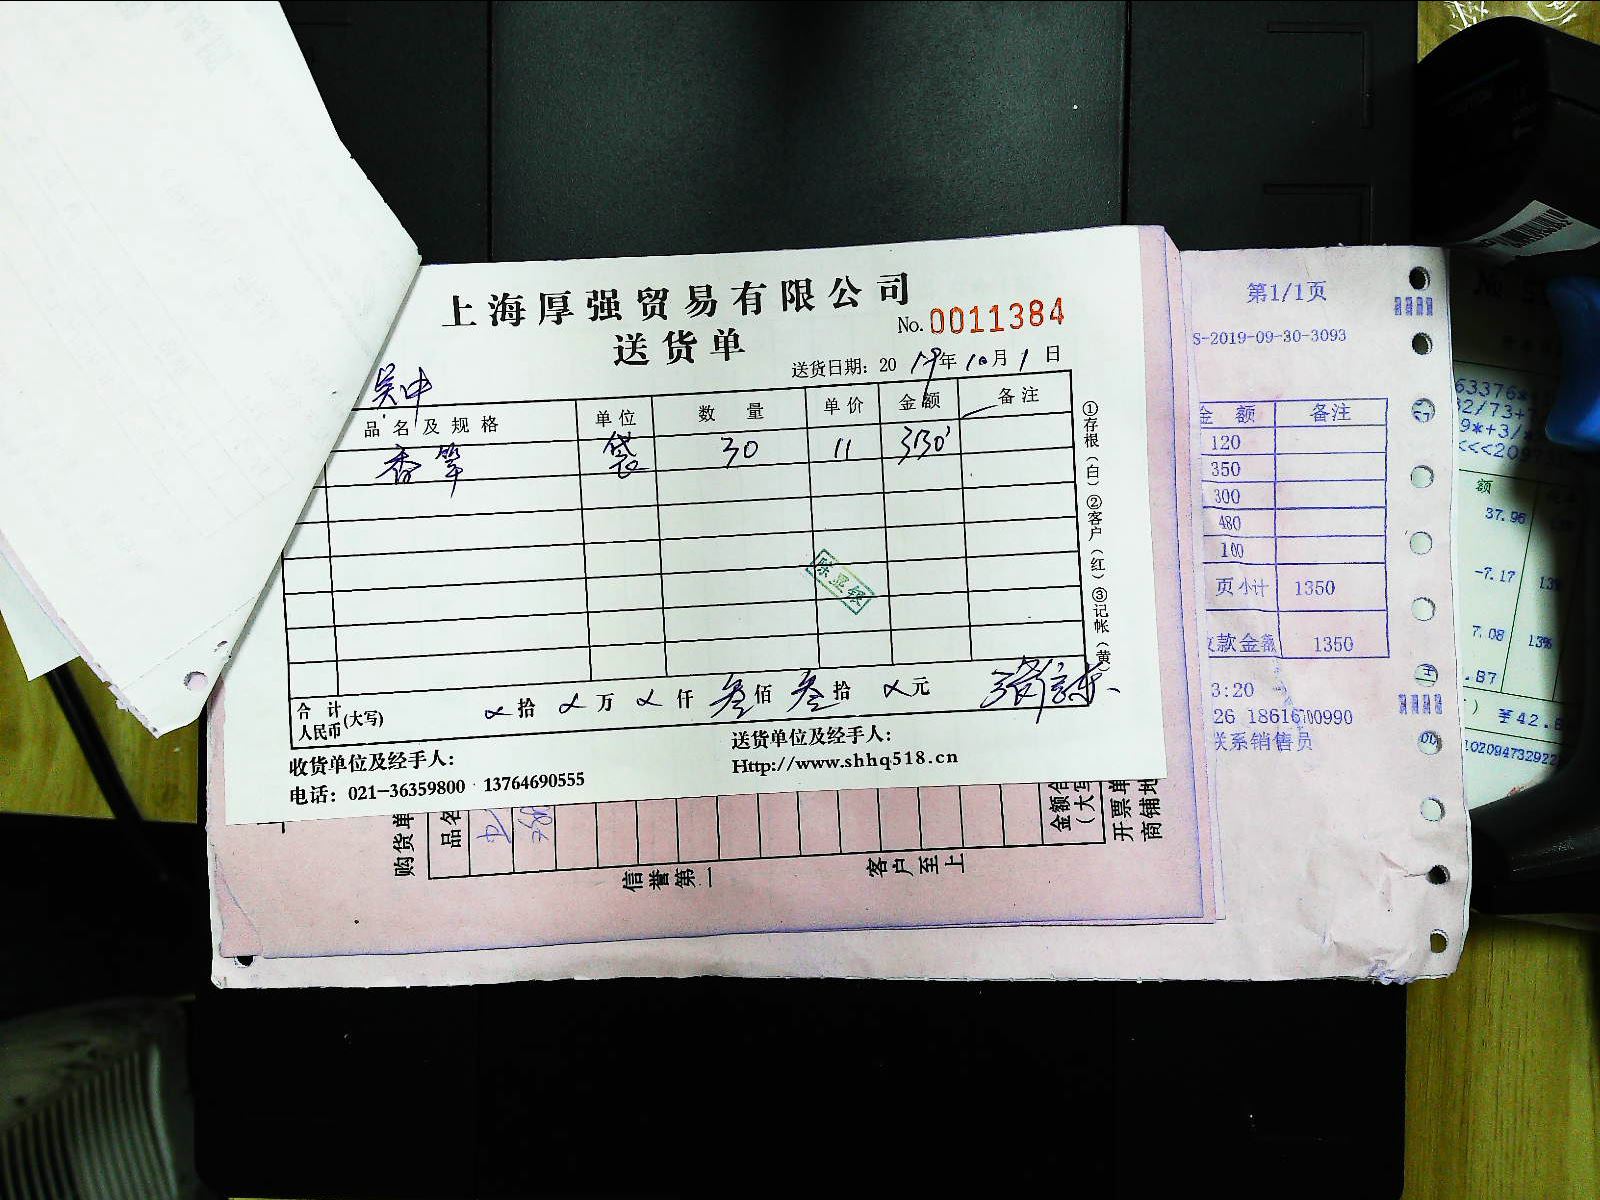 上海厚强贸易有限公司
送货单
No.0011384
吴中
送货日期：2019年10月1日
品名及规格 单位 数量 单价 金额 备注
香 袋 30 11 330
①存根（白）②客户（红）③记帐（黄
合计人民币(大写) 拾 万 仟 叁佰 叁拾 元
收货单位及经手人：
送货单位及经手人：
电话：021-36359800 13764690555
Http://www.shhq518.cn
购货单
品名
信誉第一
客户至上
金额合
(大写
开票单
商铺地
第1/1页
S-2019-09-30-3093
金额 备注
120
350
300
480
100
页小计 1350
款金额 1350
3:20
26 18616700990
联系销售员
63376*
32/73+
9*+3/
额
37.96
-7.17 13%
7.08 13%
.87
¥42.8